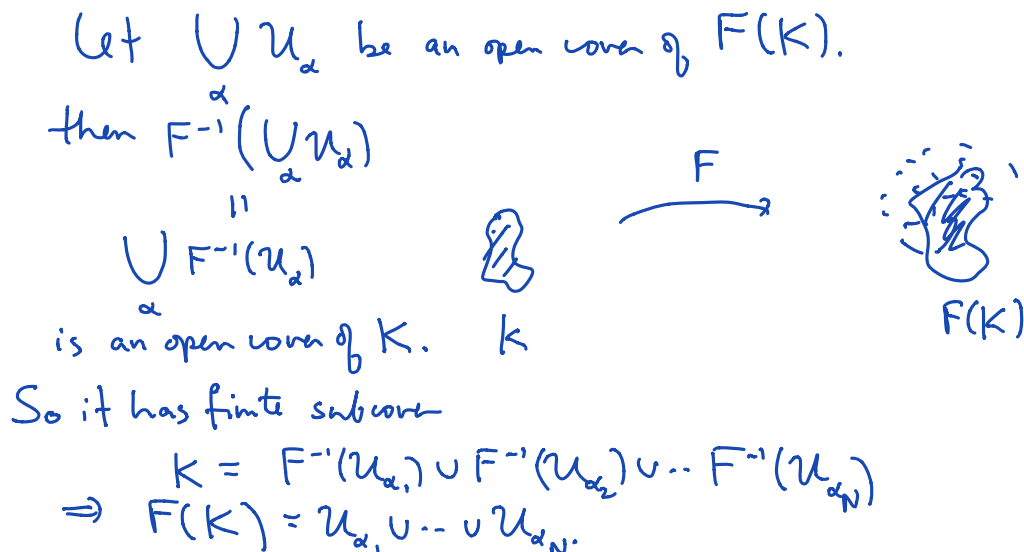 Let ⋃_α 𝒰_α be an open cover of F(K).
then F⁻¹(⋃_α 𝒰_α)
=
⋃_α F⁻¹(𝒰_α)
F
is an open cover of K.
K
F(K)
So it has finite subcover
K = F⁻¹(𝒰_α₁) ∪ F⁻¹(𝒰_α₂) ∪ .. F⁻¹(𝒰_α_N)
⇒ F(K) = 𝒰_α₁ ∪ .. ∪ 𝒰_α_N.